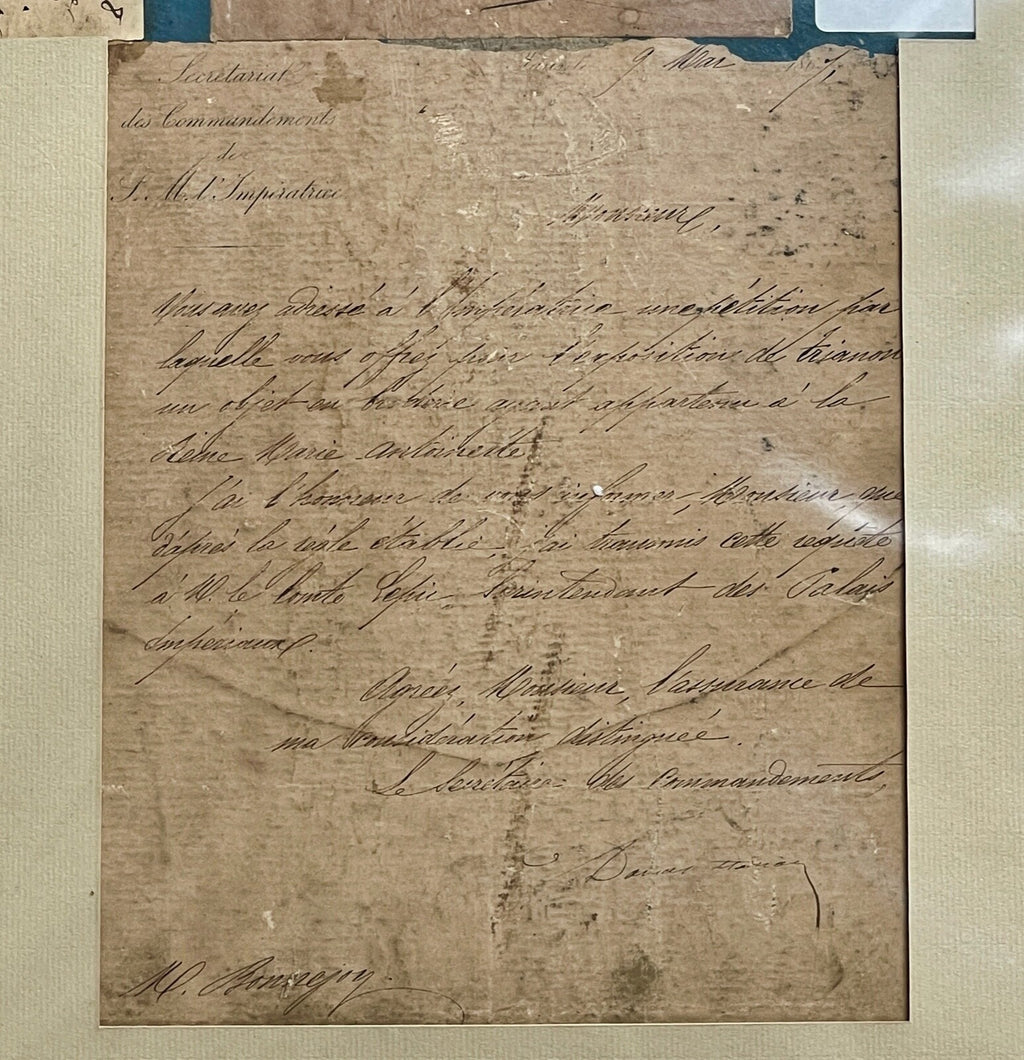 Secrétariat
des Commandements
de
S. M. l'Impératrice
9 Mai 1867,
Monsieur,
Vous avez adressé à l'Impératrice une pétition par
laquelle vous offrez pour l'exposition de trianon
un objet en broderie ayant appartenu à la
Reine Marie Antoinette
J'ai l'honneur de vous informer, Monsieur, que
d'après la règle établie, j'ai transmis cette requête
à M. le Comte Lepic, Surintendant des Palais
Impériaux.
Agréez, Monsieur, l'assurance de
ma considération distinguée.
Le Secrétaire des Commandements,
M. Bonnejoy.